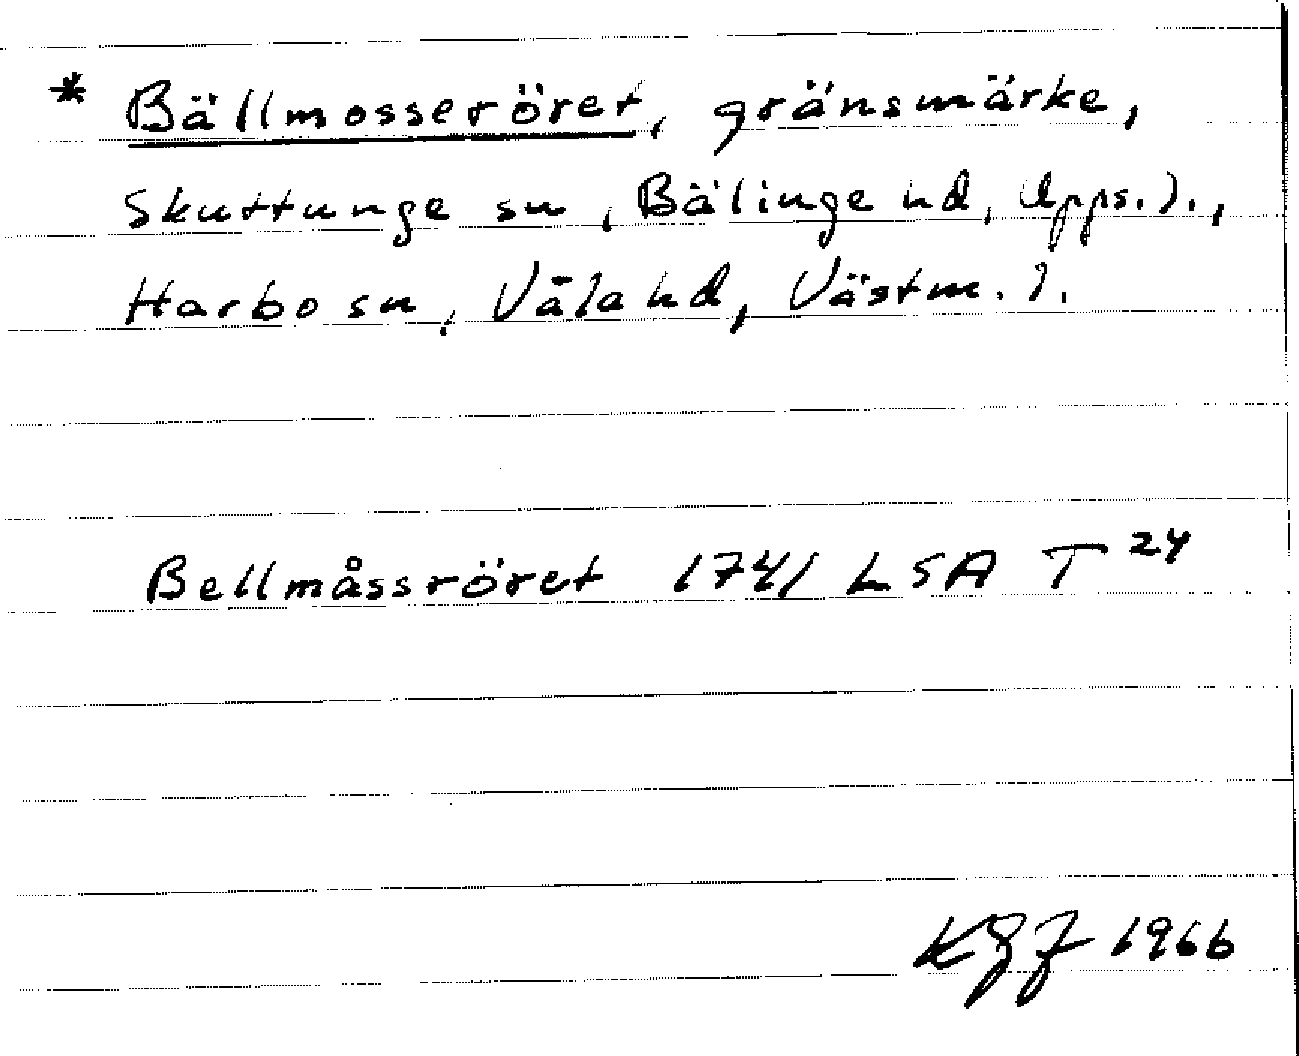 * Bällmosseröret, gränsmärke,
Skuttunge sn, Bälinge hd, Upps. l.,
Harbo sn, Våla hd, Västm. l.
Bellmåssröret 1741 LSA T 24
1966